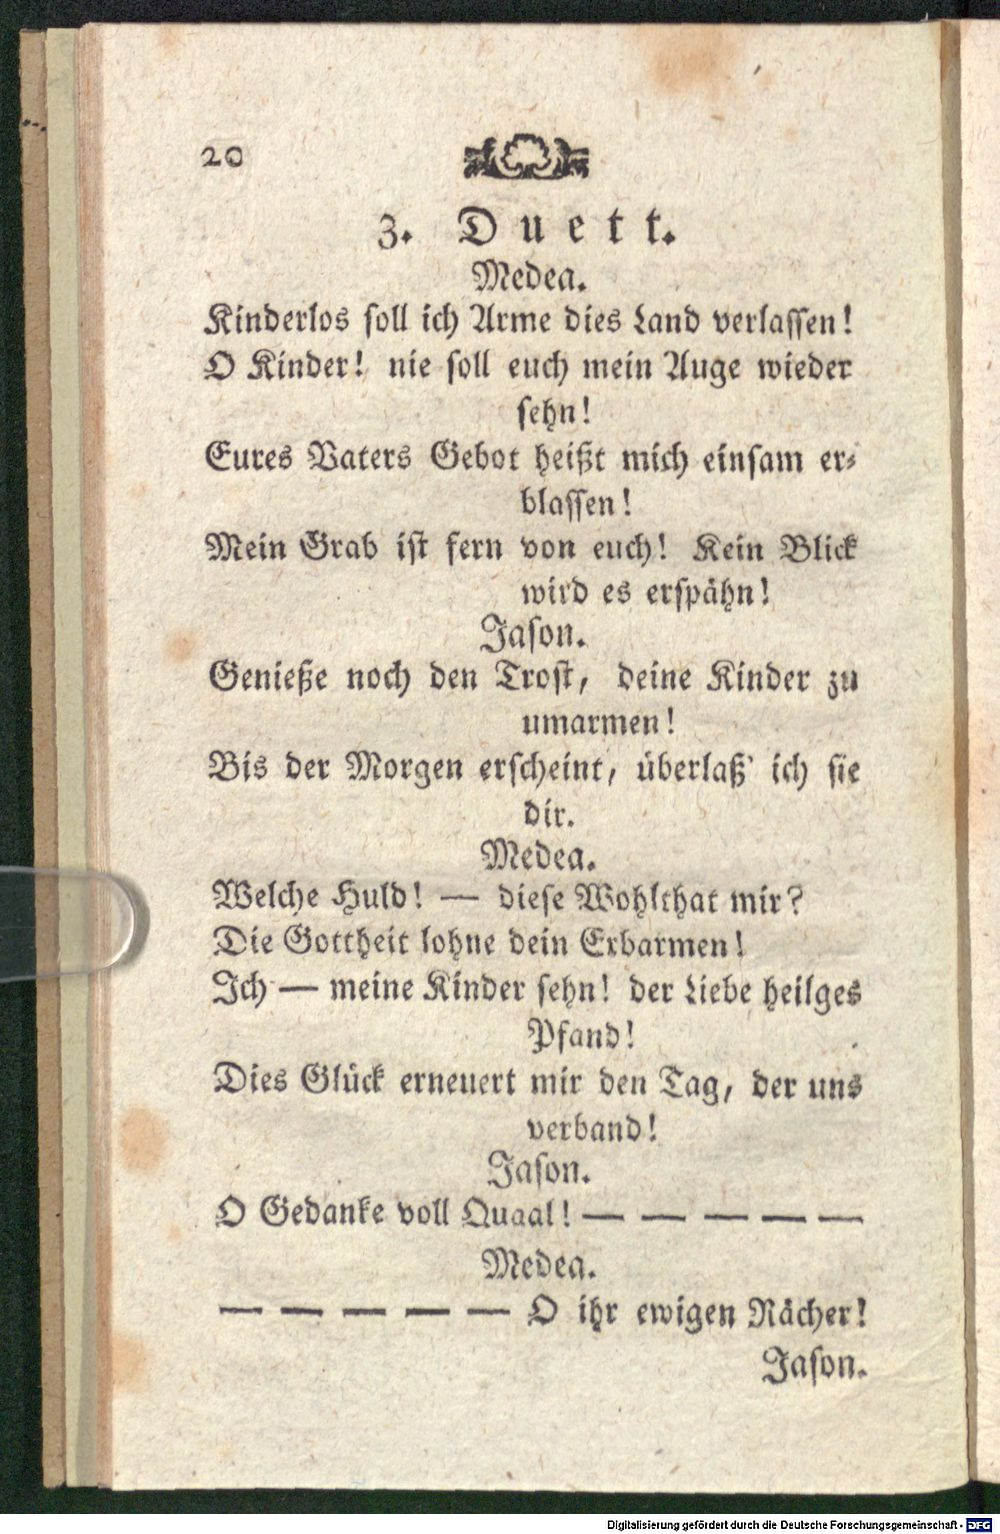 20
3. Duett.
Medea.
Kinderlos soll ich Arme dies Land verlassen!
O Kinder! nie soll euch mein Auge wieder
sehn!
Eures Vaters Gebot heißt mich einsam er-
blassen!
Mein Grab ist fern von euch! Kein Blick
wird es erspähn!
Jason.
Genieße noch den Trost, deine Kinder zu
umarmen!
Bis der Morgen erscheint, überlaß' ich sie
dir.
Medea.
Welche Huld! — diese Wohlthat mir?
Die Gottheit lohne dein Erbarmen!
Ich — meine Kinder sehn! der Liebe heilges
Pfand!
Dies Glück erneuert mir den Tag, der uns
verband!
Jason.
O Gedanke voll Quaal! — — — — —
Medea.
— — — — — O ihr ewigen Rächer!
Jason.
Digitalisierung gefördert durch die Deutsche Forschungsgemeinschaft - DFG